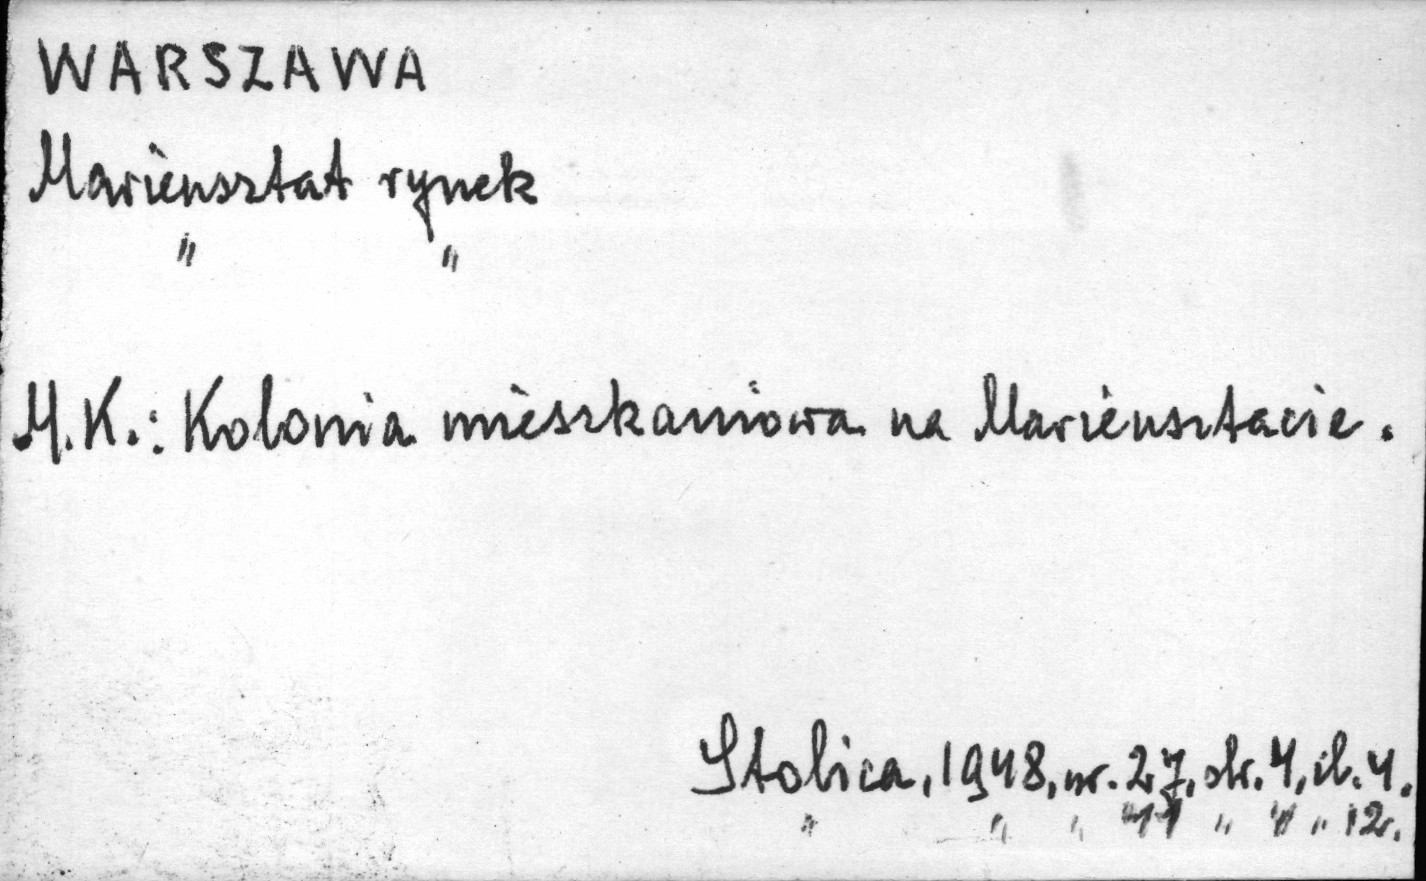 WARSZAWA
Mariensztat rynek
" "
M.K.: Kolonia mieszkaniowa na Mariensztacie.
Stolica, 1948, nr. 27, str. 4, il. 4.
" " " " " 12.